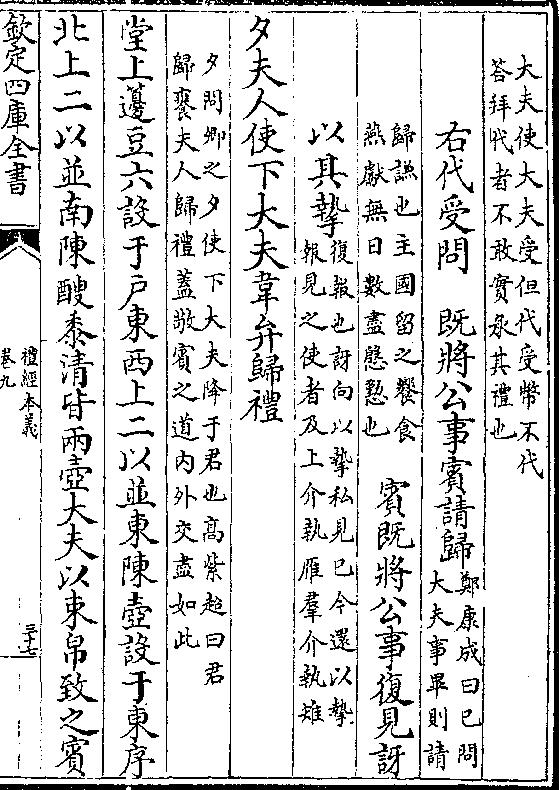 大夫使大夫受但代受幣不代
荅拜代者不敢實承其禮也
右代受問　既將公事賓請歸
鄭康成曰已問
大夫事畢則請
歸謙也主國留之饗食
燕獻無日數盡慇懃也
賓既將公事復見訝
以其摯
復報也訝向以摯私見已今還以摯
報見之使者及上介執雁羣介執雉
夕夫人使下大夫韋弁歸禮
夕問卿之夕使下大夫降于君也高紫超曰君
歸饔夫人歸禮蓋敬賓之道内外交盡如此
堂上邊豆六設于戶東西上二以並東陳壺設于東序
北上二以並南陳醙黍清皆兩壺大夫以束帛致之賓
欽定四庫全書
禮經本義
卷九
三十七